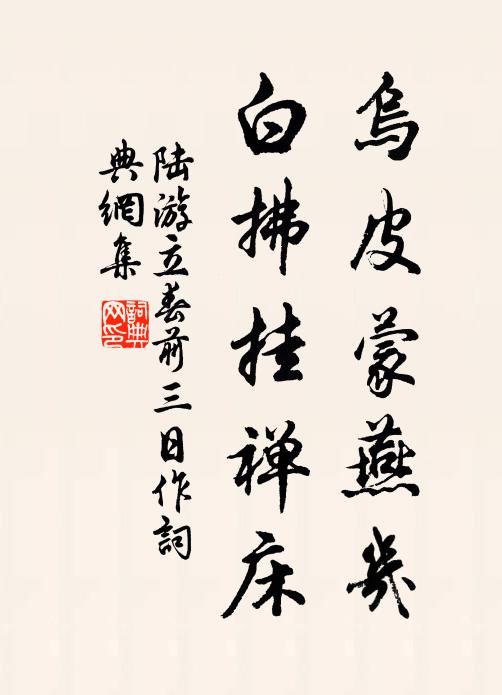 烏皮蒙燕几
白拂挂禅床
陆游立春前三日作詞
典網集
詞典
网印